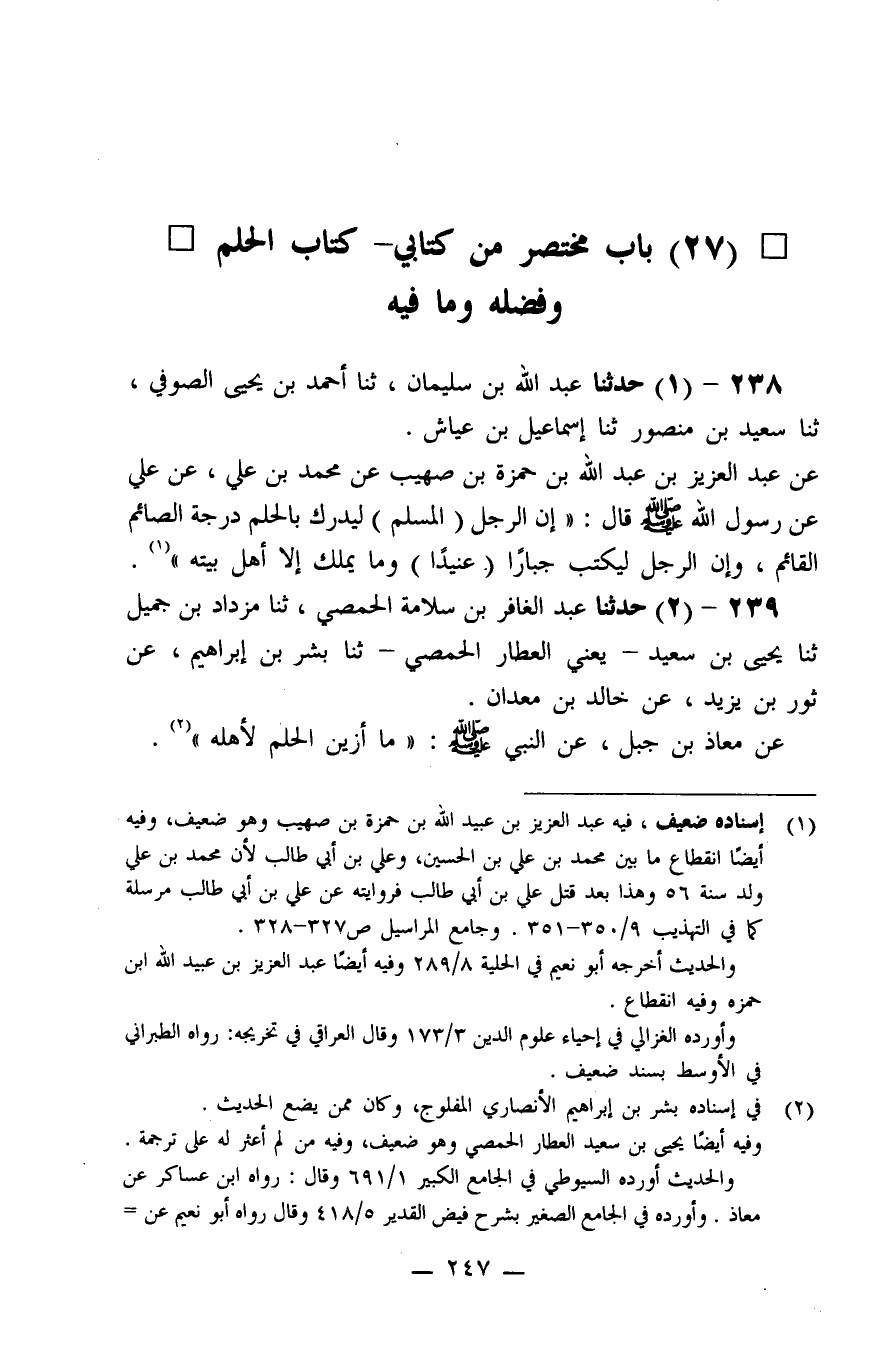 □ (٢٧) باب مختصر من كتابي- كتاب الحلم □
وفضله وما فيه
٢٣٨ - (١) حدثنا عبد الله بن سليمان ، ثنا أحمد بن يحيى الصوفي ،
ثنا سعيد بن منصور ثنا إسماعيل بن عياش .
عن عبد العزيز بن عبد الله بن حمزة بن صهيب عن محمد بن علي ، عن علي
عن رسول الله ﷺ قال : « إن الرجل ( المسلم ) ليدرك بالحلم درجة الصائم
القائم ، وإن الرجل ليكتب جبارًا ( عنيدًا ) وما يملك إلا أهل بيته »(١) .
٢٣٩ - (٢) حدثنا عبد الغافر بن سلامة الحمصي ، ثنا مزداد بن جميل
ثنا يحيى بن سعيد - يعني العطار الحمصي - ثنا بشر بن إبراهيم ، عن
ثور بن يزيد ، عن خالد بن معدان .
عن معاذ بن جبل ، عن النبي ﷺ : « ما أزين الحلم لأهله »(٢) .
(١) إسناده ضعيف ، فيه عبد العزيز بن عبيد الله بن حمزة بن صهيب وهو ضعيف، وفيه
أيضًا انقطاع ما بين محمد بن علي بن الحسين، وعلي بن أبي طالب لأن محمد بن علي
ولد سنة ٥٦ وهذا بعد قتل علي بن أبي طالب فروايته عن علي بن أبي طالب مرسلة
كما في التهذيب ٣٥٠/٩-٣٥١ . وجامع المراسيل ص٣٢٧-٣٢٨ .
والحديث أخرجه أبو نعيم في الحلية ٢٨٩/٨ وفيه أيضًا عبد العزيز بن عبيد الله ابن
حمزه وفيه انقطاع .
وأورده الغزالي في إحياء علوم الدين ١٧٣/٣ وقال العراقي في تخريجه: رواه الطبراني
في الأوسط بسند ضعيف .
(٢) في إسناده بشر بن إبراهيم الأنصاري المفلوج، وكان ممن يضع الحديث .
وفيه أيضًا يحيى بن سعيد العطار الحمصي وهو ضعيف، وفيه من لم أعثر له على ترجمة .
والحديث أورده السيوطي في الجامع الكبير ٦٩١/١ وقال : رواه ابن عساكر عن
معاذ . وأورده في الجامع الصغير بشرح فيض القدير ٤١٨/٥ وقال رواه أبو نعيم عن =
— ٢٤٧ —